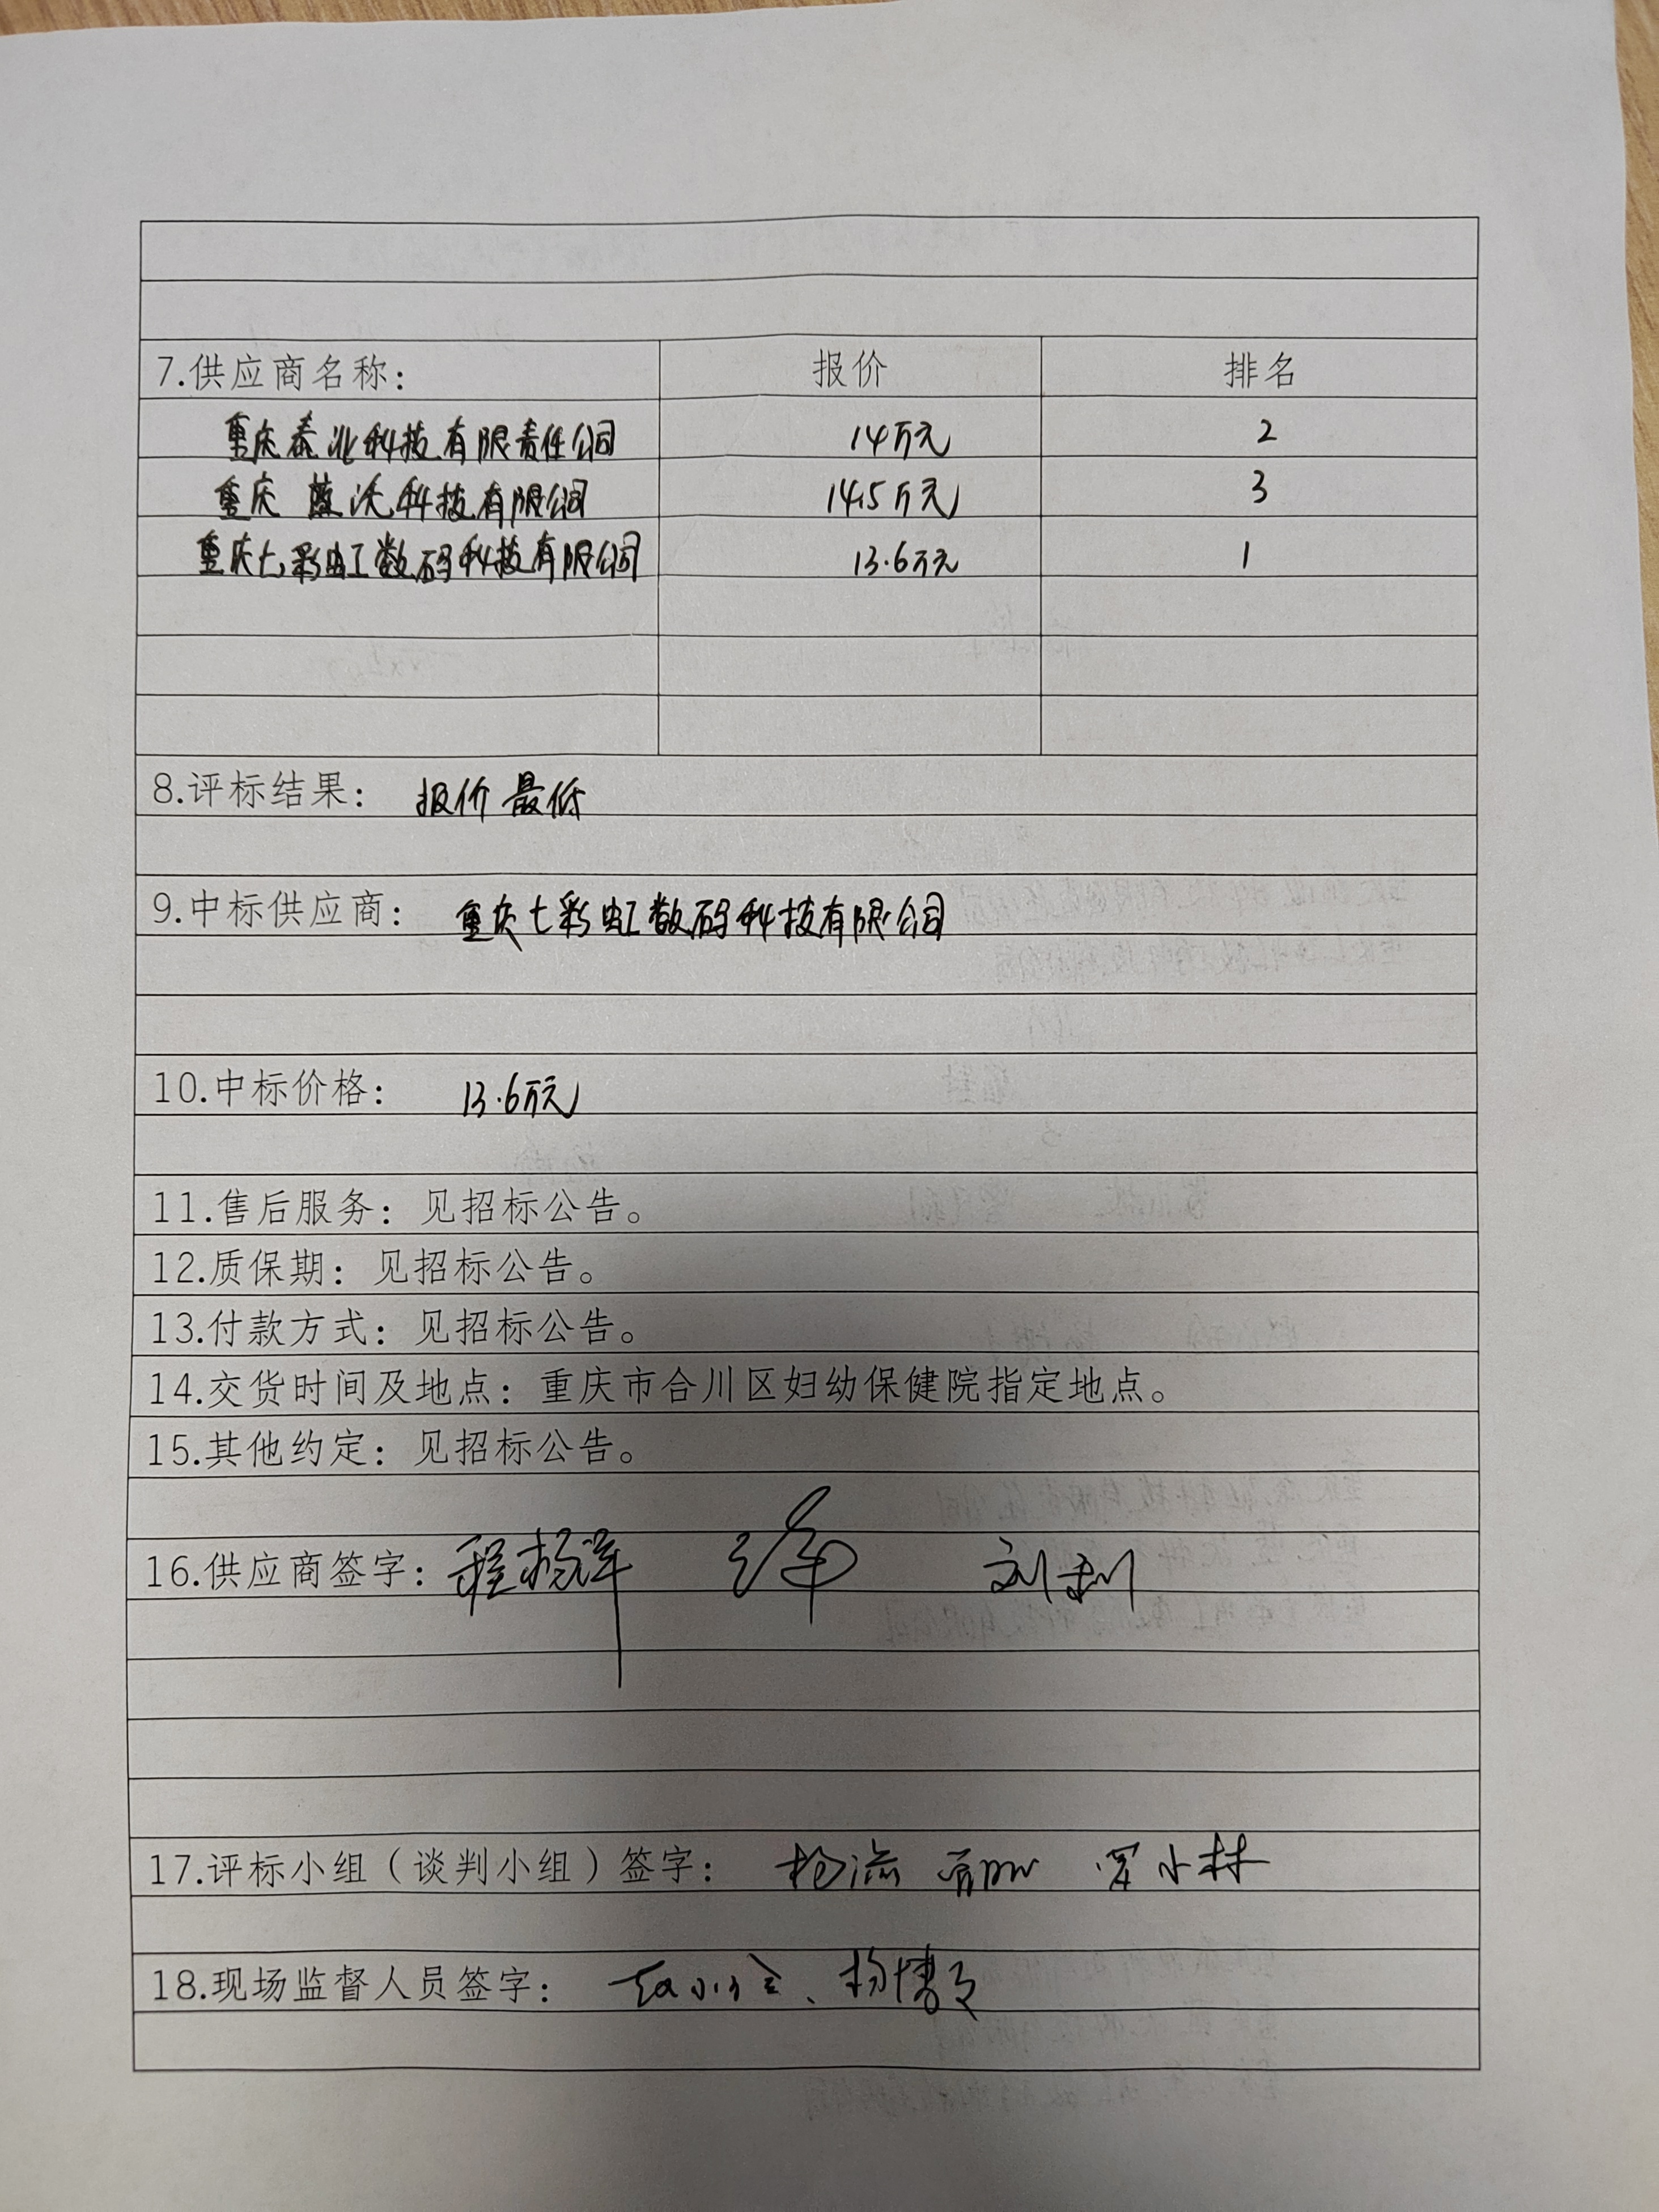 7.供应商名称： 报价 排名
重庆泰业科技有限责任公司 14万元 2
重庆蓝沃科技有限公司 14.5万元 3
重庆七彩虹数码科技有限公司 13.6万元 1
8.评标结果： 报价最低
9.中标供应商： 重庆七彩虹数码科技有限公司
10.中标价格： 13.6万元
11.售后服务：见招标公告。
12.质保期：见招标公告。
13.付款方式：见招标公告。
14.交货时间及地点：重庆市合川区妇幼保健院指定地点。
15.其他约定：见招标公告。
16.供应商签字：程杨洋 刘利
17.评标小组（谈判小组）签字： 罗小林
18.现场监督人员签字：